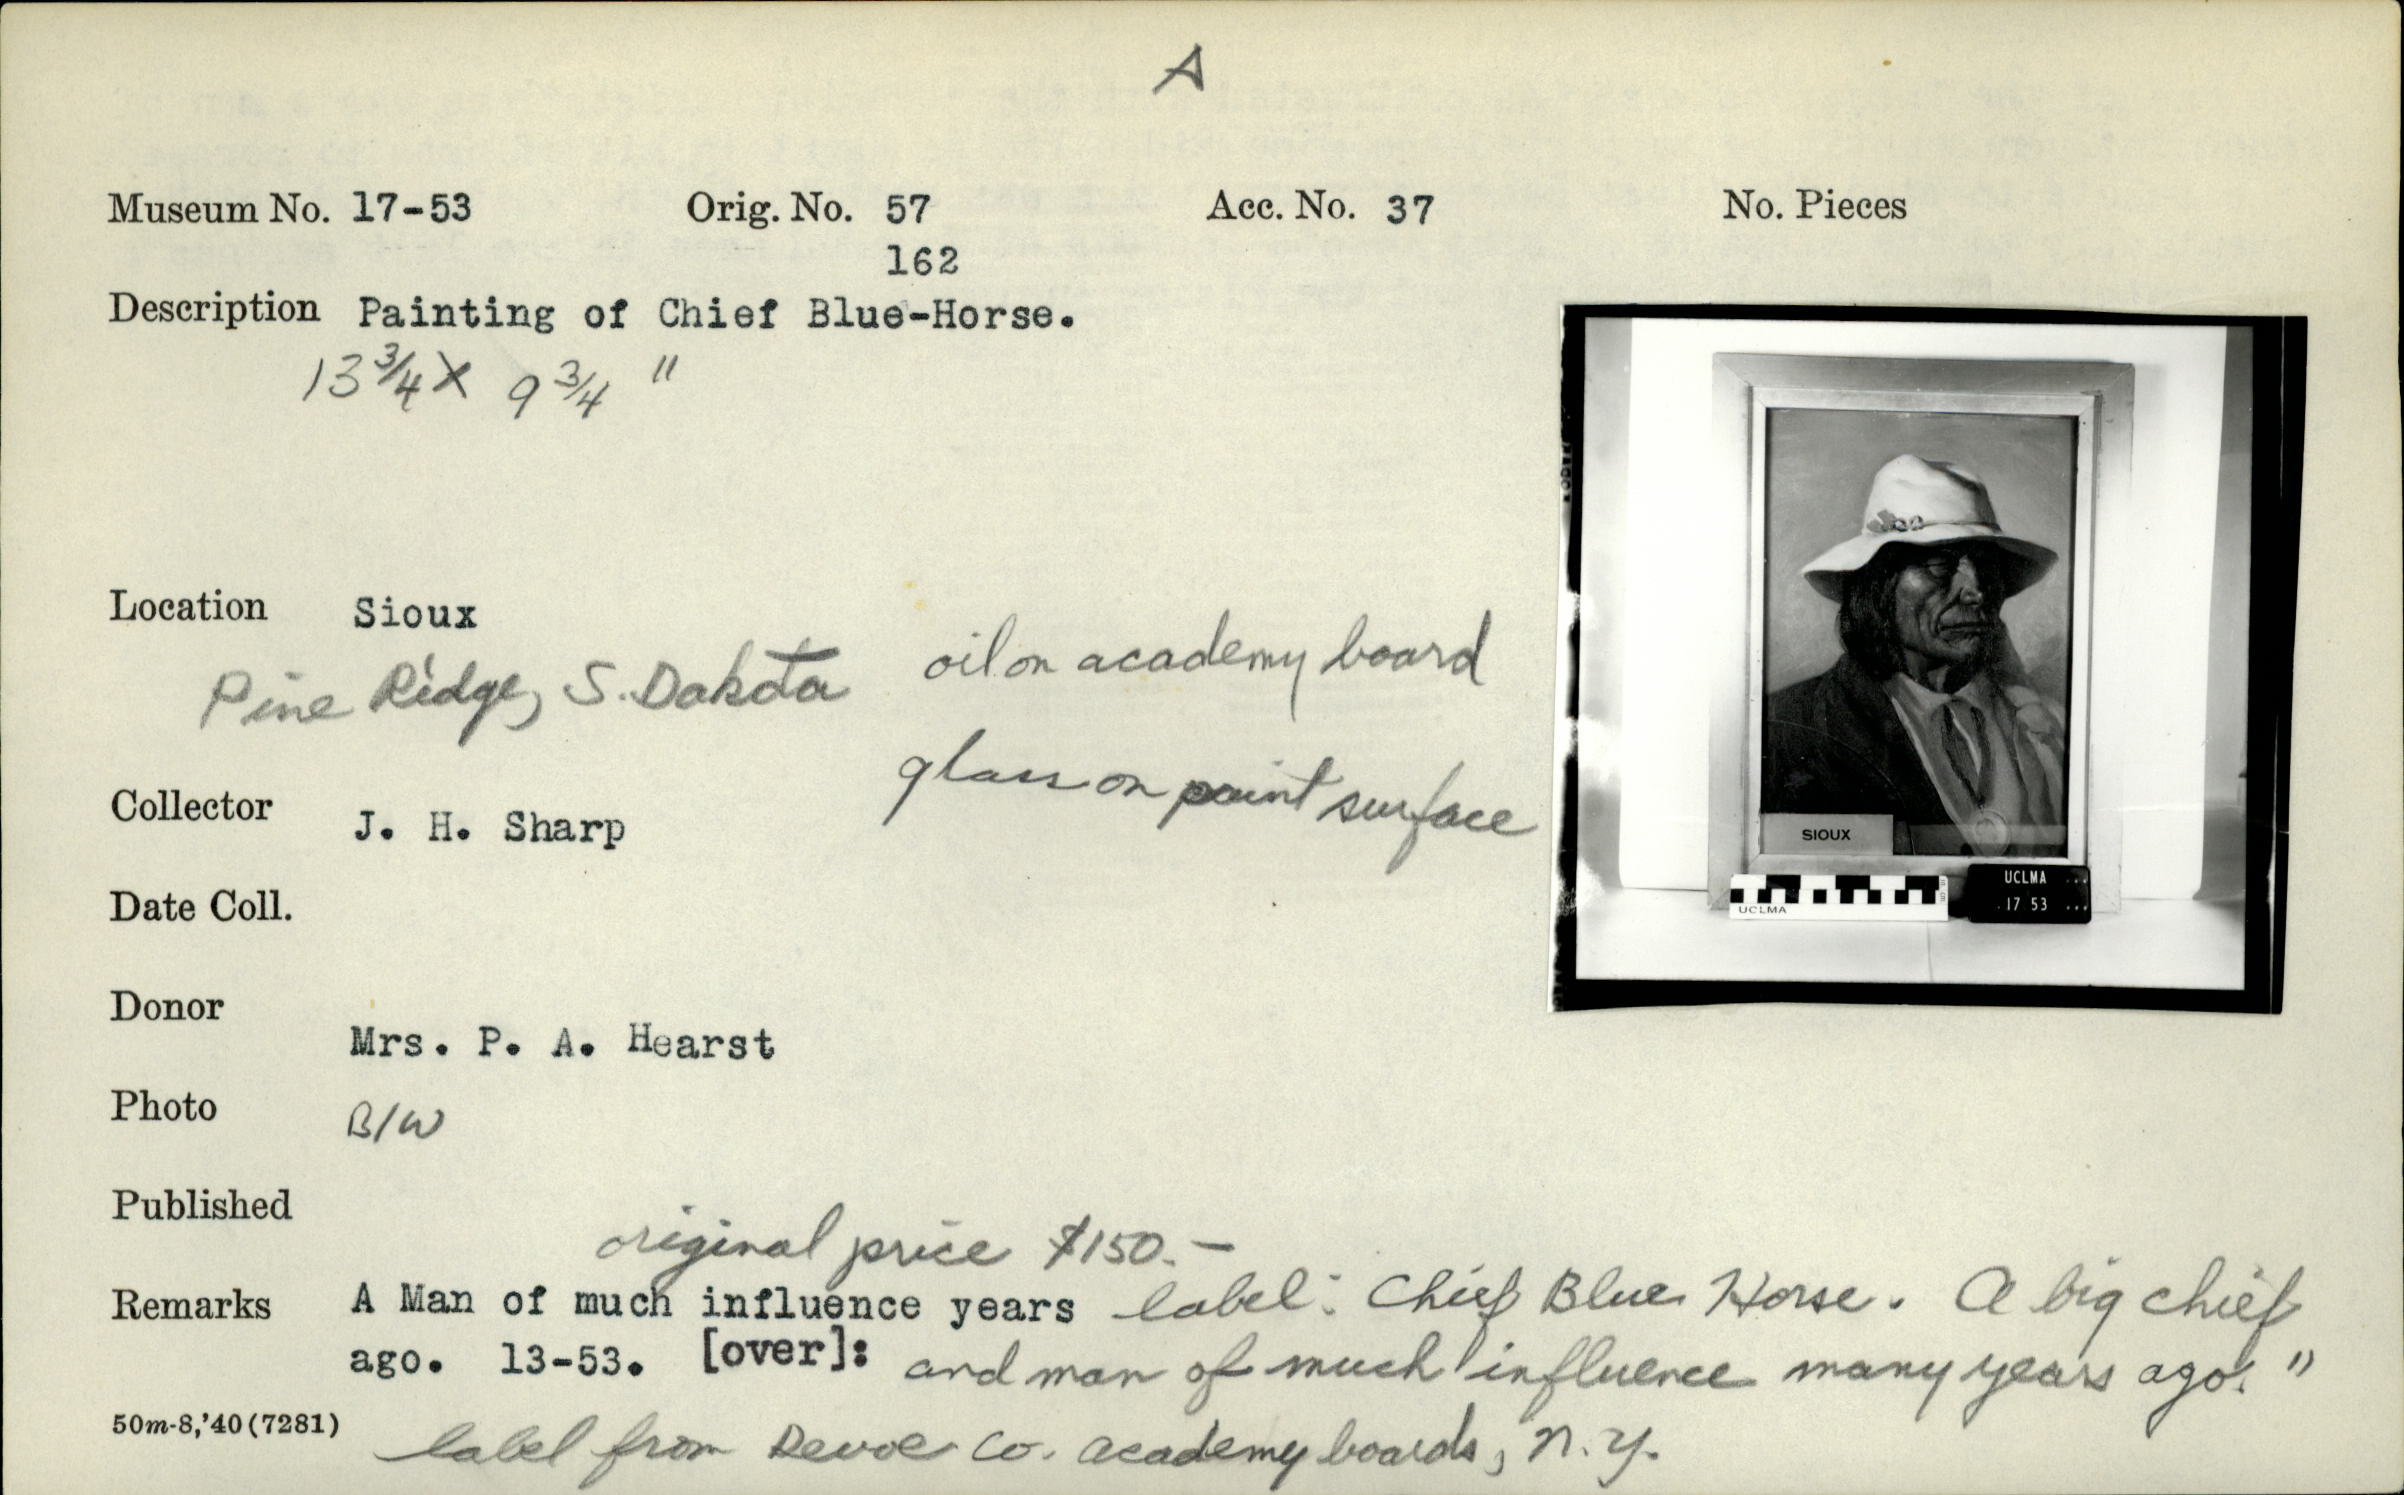 A
Museum No. 17-53 Orig. No. 57 Acc. No. 37 No. Pieces
162
Description Painting of Chief Blue-Horse.
13 3/4 X 9 3/4 "
Location Sioux
Pine Ridge, S. Dakota
oil on academy board
glass on paint surface
Collector J. H. Sharp
Date Coll.
Donor Mrs. P. A. Hearst
Photo B/W
Published
original price $150.-
Remarks A Man of much influence years label: Chief Blue Horse. A big chief
ago. 13-53. [over]: and man of much influence many years ago."
50m-8,'40(7281)
label from Devoe Co. academy boards, N.Y.
SIOUX
UCLMA
UCLMA ...
17 53 ...